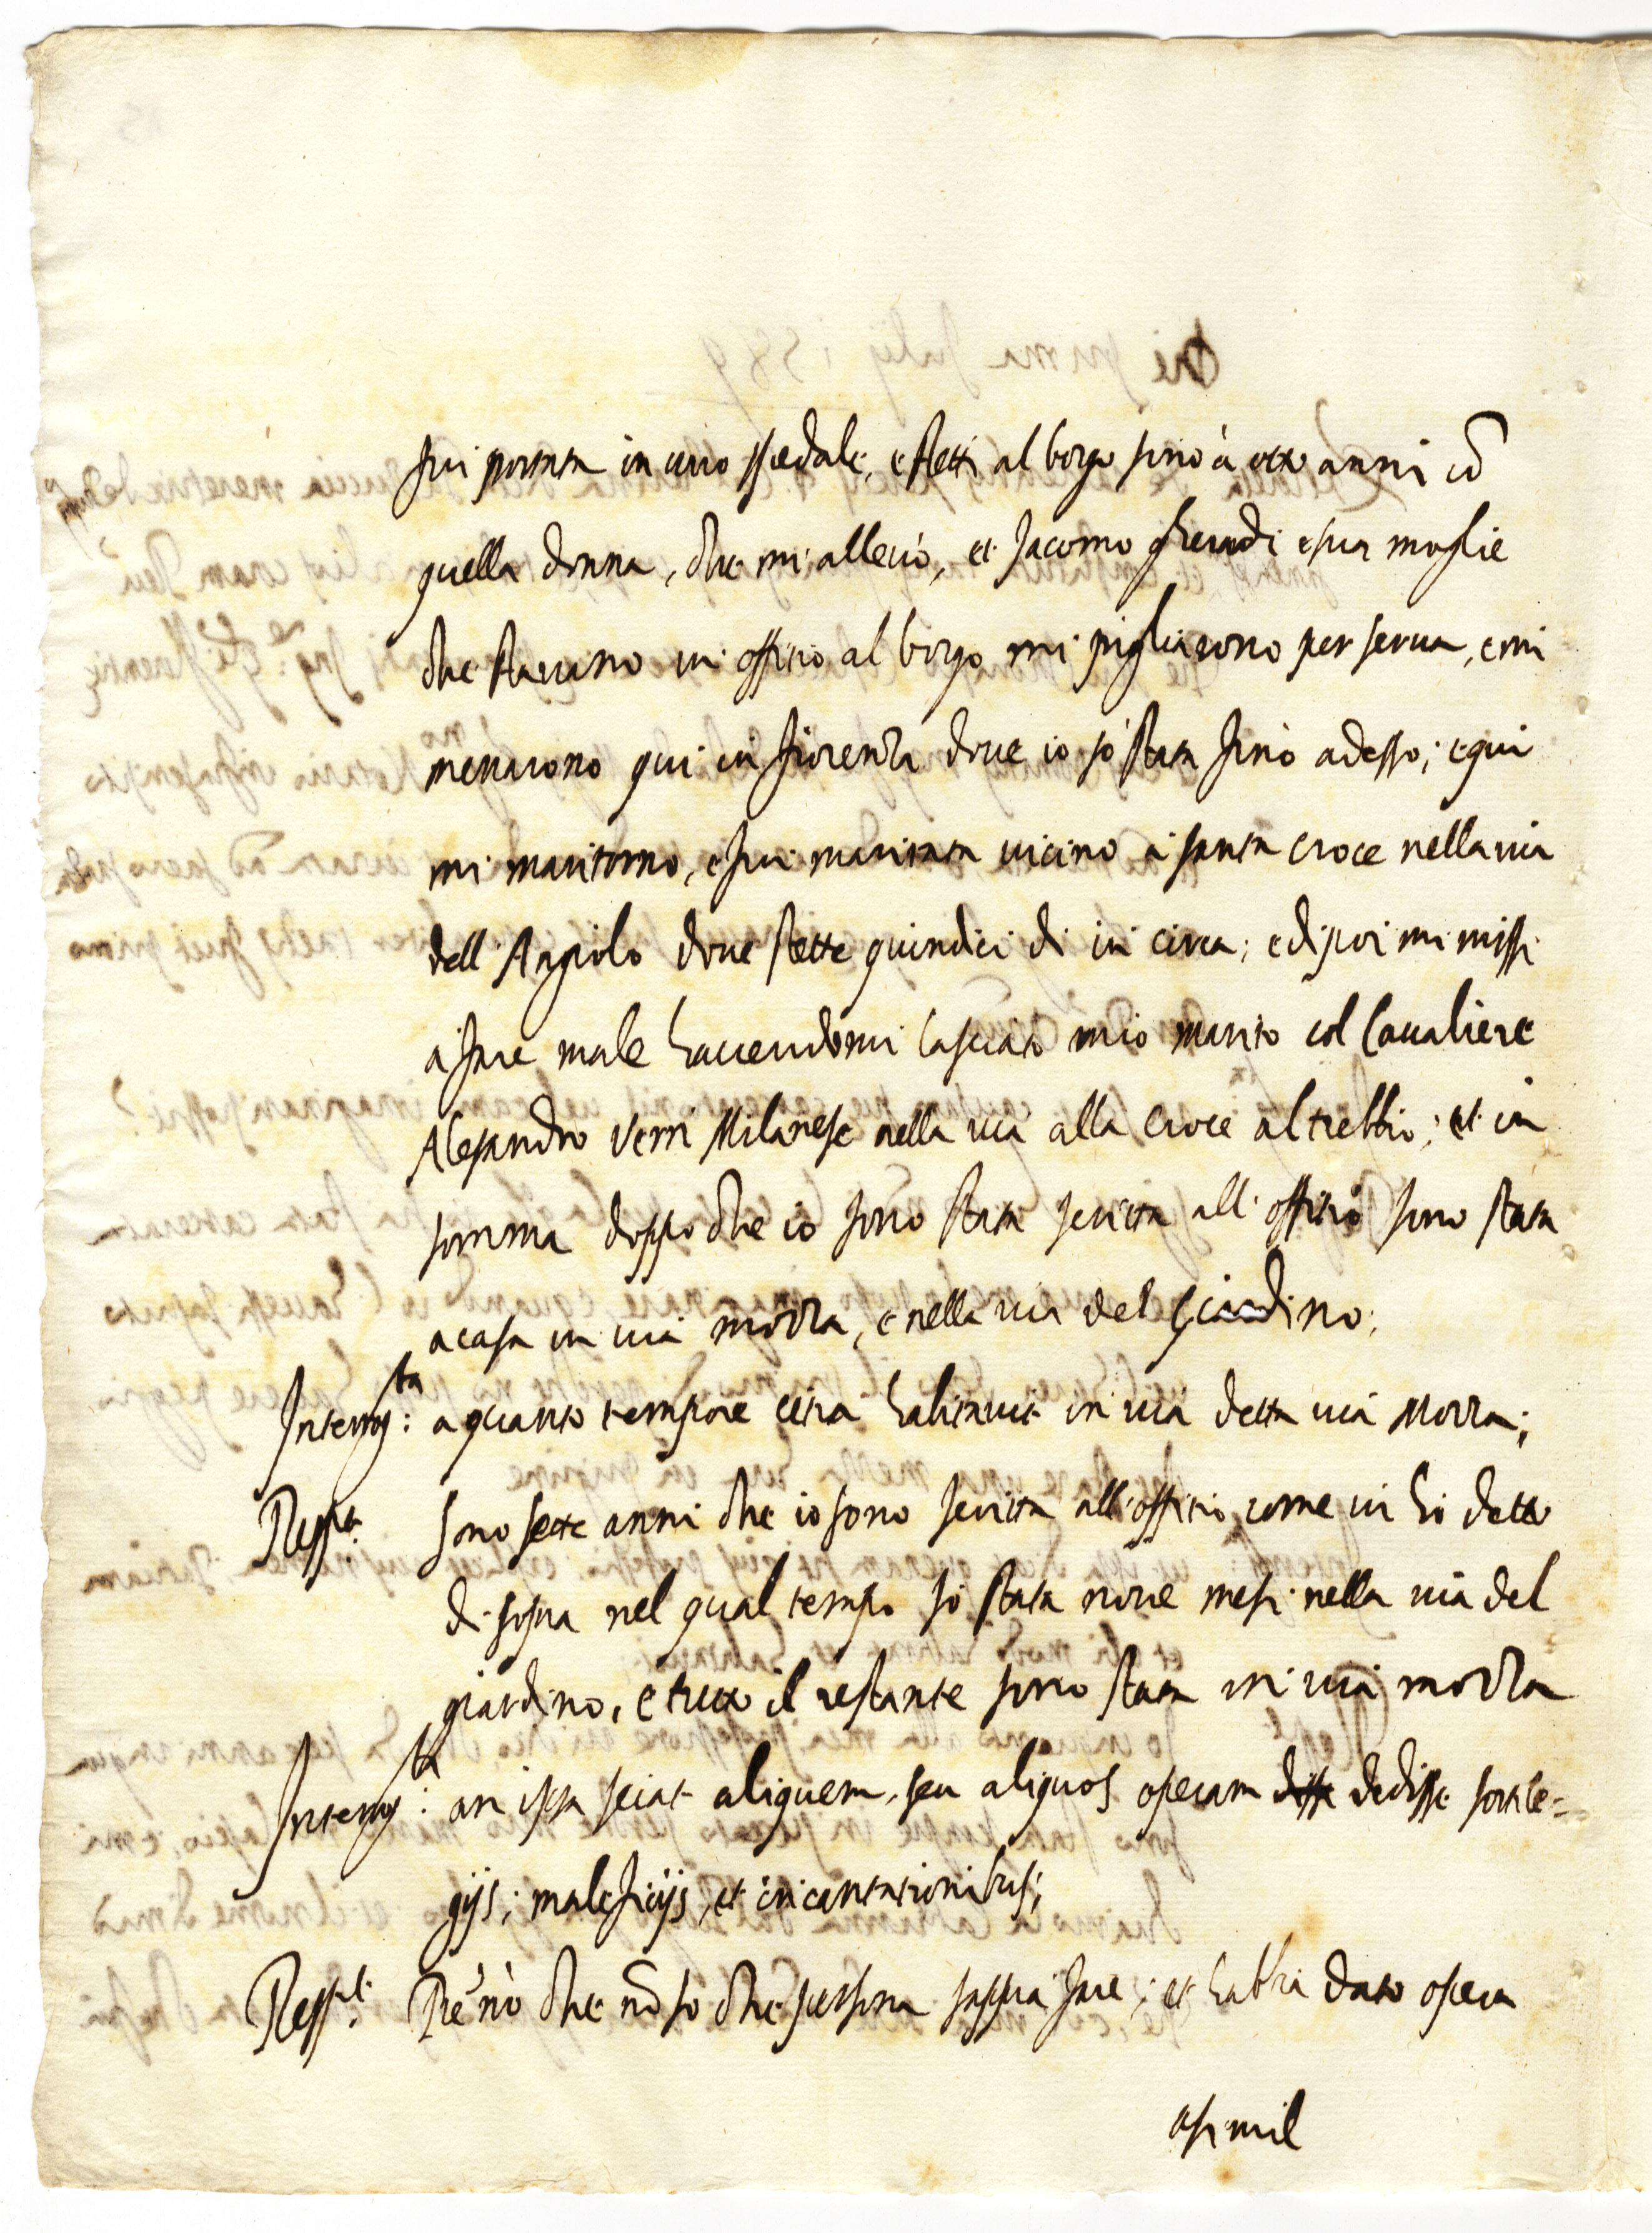 fui portata in uno spedale, e stetti al borgo sino à otto anni cō
quella donna, che mi allevò, et Jacomo Gherardi e sua moglie
che stavano in offitio al borgo mi pigliarono per serva, e mi
menarono qui in fiorenza dove io so stata sino adesso; e qui
mi maritorno, e fui maritata vicino à santa croce nella via
dell'Angiolo dove stette quindici di in circa; e dipoi mi missi
à fare male havendomi lasciato mio marito col Cavaliere
Alesandro Verri Milanese nella via alla Croce al trebbio; et in
somma doppo che io sono stata scritta all'offitio sono stata
a casa in via mozza, e nella via del Giardino;
Interrog:ta a quanto tempore citra habitavit in via detta via Mozza;
Resp:t sono sette anni che io sono scritta all'offitio, come vi hò detto
di sopra nel qual tempo so stata nove mesi nella via del
giardino, e tutto il restante sono stata in via mozza
Interrog:ta an ipsa sciat aliquem, seu aliquos operam dedisse sortile=
gijs; maleficijs, et incantationibus;
Resp:t nò che nō so che persona sappia fare; et habbia dato opera
a simil